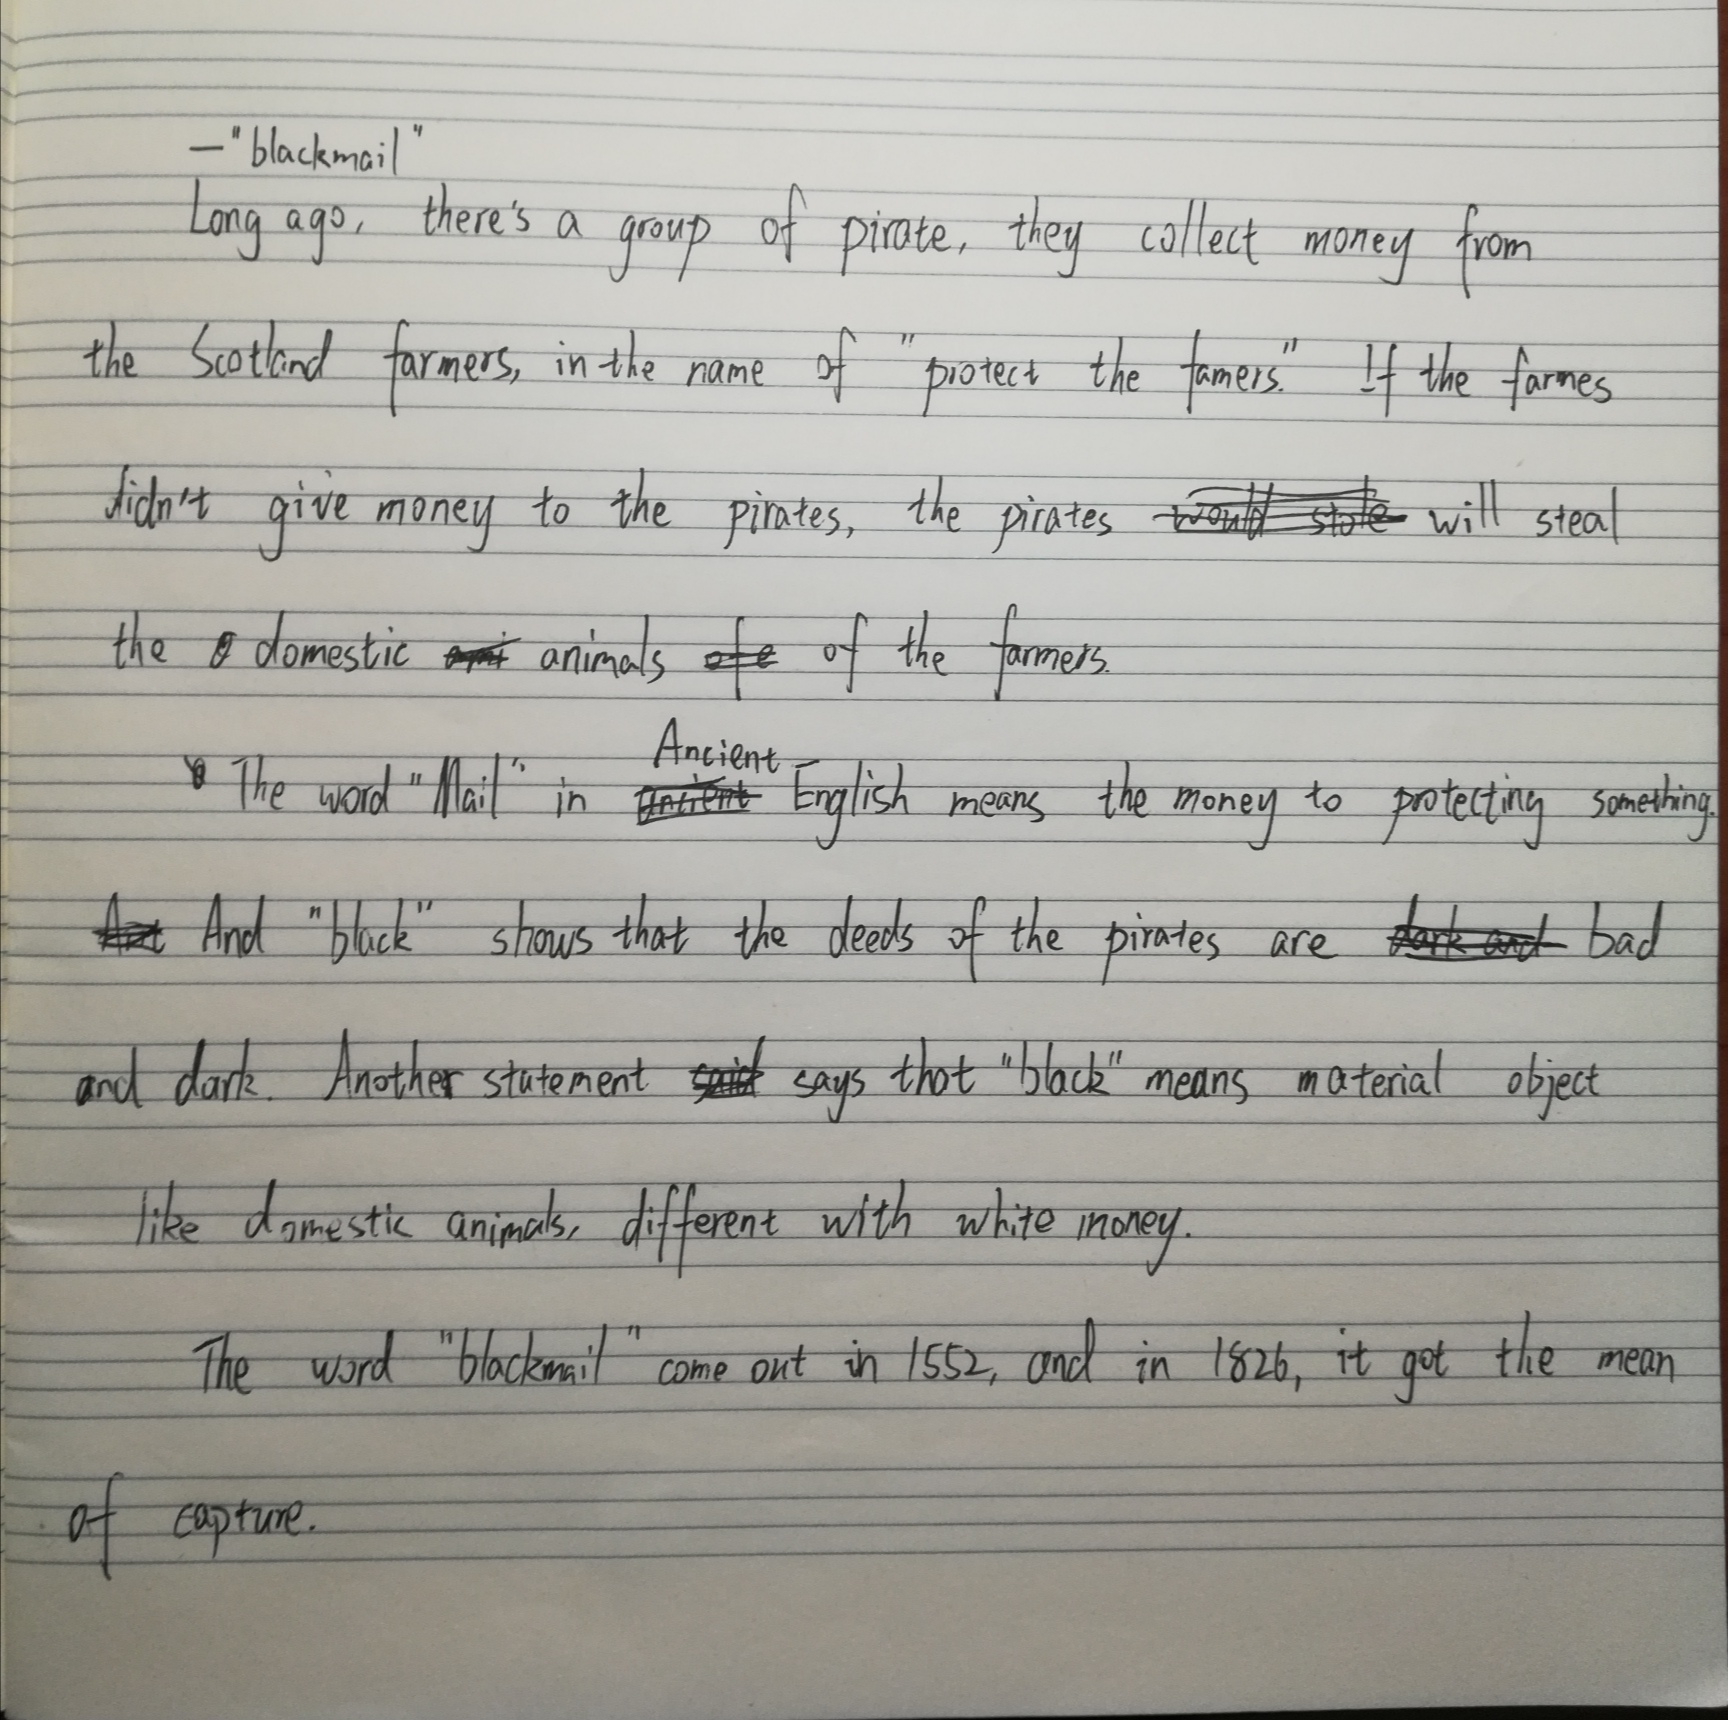 —"blackmail"
Long ago, there's a group of pirate, they collect money from
the Scotland farmers, in the name of "protect the famers." If the farmes
didn't give money to the pirates, the pirates would stole will steal
the domestic ani animals of e of the farmers.
Ancient
The word "Mail" in ancient English means the money to protecting something.
And "black" shows that the deeds of the pirates are dark and bad
and dark. Another statement said says that "black" means material object
like domestic animals, different with white money.
The word "blackmail" come out in 1552, and in 1826, it got the mean
of capture.